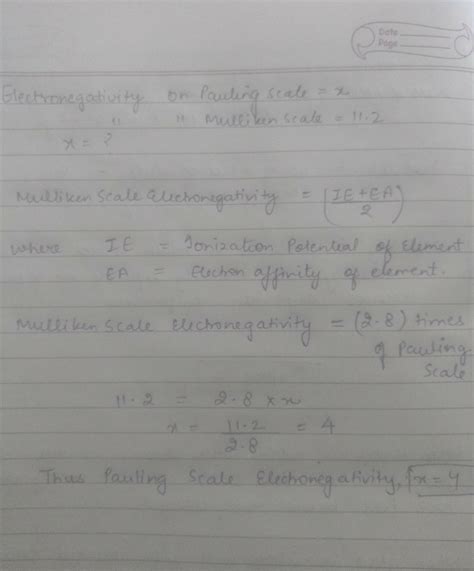 Date
Page
Electronegativity on Pauling scale = x
" " Mulliken scale = 11.2
x = ?
Mulliken Scale Electronegativity = (IE+EA/2)
where IE = Ionization Potential of Element
EA = Electron affinity of element.
Mulliken Scale Electronegativity = (2.8) times
of Pauling
Scale
11.2 = 2.8 × x
x = 11.2/2.8 = 4
Thus Pauling Scale Electronegativity, x = 4